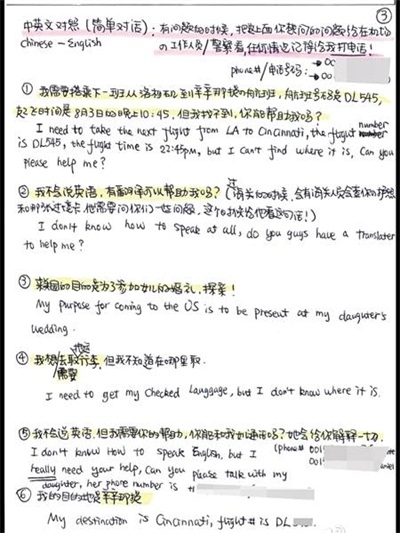 ③
中英文对照(简单对话): 有问题的时候,把上面你想问的问题给在机场
Chinese - English 的工作人员/警察看,任何情况记得给我打电话!
phone#/电话号码: → 00
→ 00
① 我需要搭乘下一班从洛杉矶到辛辛那提的航班,航班号码是DL545,
起飞时间是8月3日的晚上10:45,但我找不到,你能帮助我吗?
I need to take the next flight from LA to Cincinnati, the flight number
is DL545, the flight time is 22:45pm, but I can't find where it is, Can you
please help me?
② 我不会说英语,有翻译可以帮助我吗?(过海关的时候,会有海关人员会查你们护照
和那张过境卡,他需要问你们一些问题,这个时候给他看这句话!)
I don't know how to speak at all, do you guys have a translater
to help me?
③ 来美国的目的是为了参加女儿的婚礼,探亲!
My purpose for coming to the US is to be present at my daughter's
wedding.
④ 我想去取行李,但我不知道在哪里取.
需要
I need to get my checked Langgage, but I don't know where it is.
⑤ 我不会说英语,但我需要你的帮助,你能和我女儿通话吗?她会给你解释一切.
I don't know how to speak English, but I (phone# 001
really need your help, Can you please talk with my 001
daughter, her phone number is +
⑥ 我的目的地是辛辛那提
My destination is Cincinnati, flight# is DL